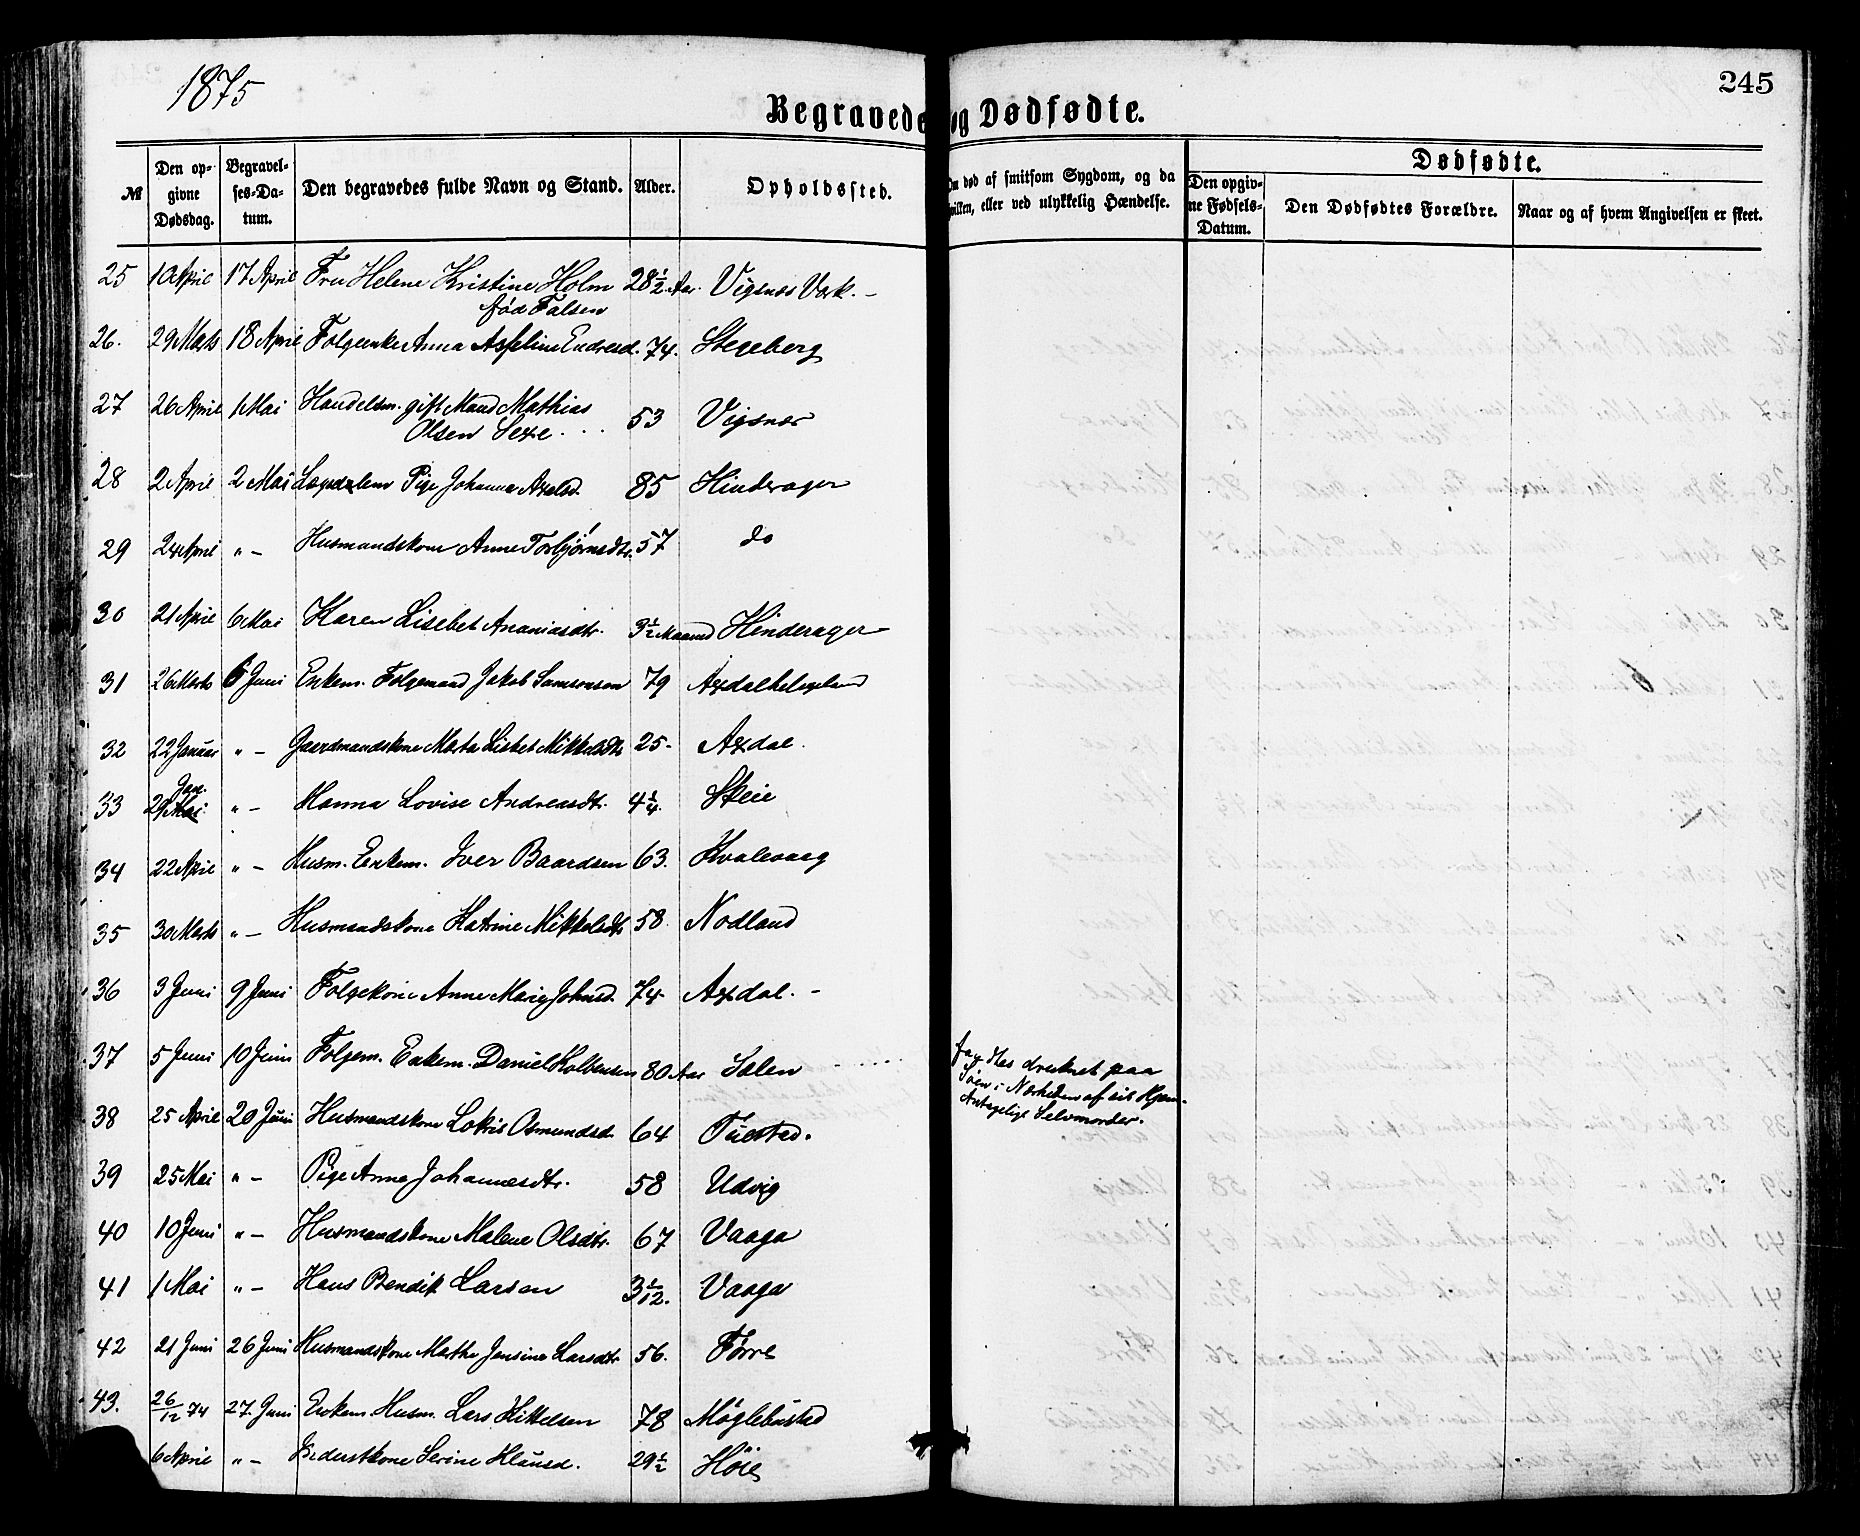 1875
245
Begravede og Dødfødte.
№ Den opgivne Dødsdag. Begravelses-Datum. Den begravedes fulde Navn og Stand. Alder. Opholdssted. død af smitsom Sygdom, og da hvilken, eller ved ulykkelig Hændelse. Dødfødte. Den opgivne Fødsels-Datum. Den Dødfødtes Forældre. Naar og af hvem Angivelsen er skeet.
25 10 April 17 April Fru Helene Kristine Holm 28 1/2 Aar Vigsnes Værk. –
fød Falsen
26. 29 Marts 18 April Folgeenke Anna Asseline Endresd. 74. Stegeberg
27 26 April 1 Mai Handelsm. gift Mand Mathias 53 Vigsnes
Olsen Sexe
28 2 April 2 Mai Lægdslem Pige Johanna Axelsd. 85 Hinderager
29 24 April " – Husmandskone Anne Torbjørnsdtr. 57 do
30 21 April 6 Mai Karen Lisebet Ananiasdtr. 3 1/2 Maaned Hinderager
31 26 Marts 6 Juni Enkem. Folgemand Jakob Samsonsen 79 Axdalhelgeland
32 22 Januar " – Gaardmandskone Marta Lisbet Mikkelsdtr 25. Axdal.
33 29 Mai Jan. " – Hanna Lovise Andreasdtr. 4 1/4. Skeie
34 22 April " – Husm. Enkem. Iver Baardsen 63. Kvalevaag
35 30 Marts " – Husmandskone Katrine Mikkelsdtr 58 Nodland
36 3 Juni 9 Juni Folgekone Anne Marie Johnsd. 74 Axdal. –
37 5 Juni 10 Juni Folgem. Enkem. Daniel Kolbensen 80 Aar Salen
fandtes druknet paa
Søen i Nærheden af sit Hjem.
Antagelige Selvmorder.
38 25 April 20 Juni Husmandskone Lokris Osmundsd. 64 Tuestad.
39 25 Mai " – Pige Anna Johannesdtr. 58 Udvig
40 10 Juni " – Husmandskone Malene Olsdtr. 67 Vaaga
41 1 Mai " – Hans Bendik Larsen 3 1/12. Vaaga
42 21 Juni 26 Juni Husmandskone Marthe Jensine Larsdtr 56. Førre
43. 26/12 74 27. Juni Enkem. Husm. Lars Kittelsen 78 Møglebustad
6 April " – Inderstkone Serine Klausd. 29 1/2 Høie